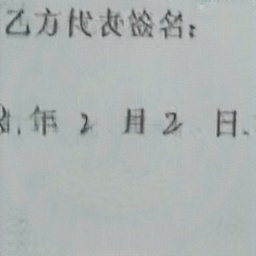 乙方代表签名:
年 2 月 2 日.